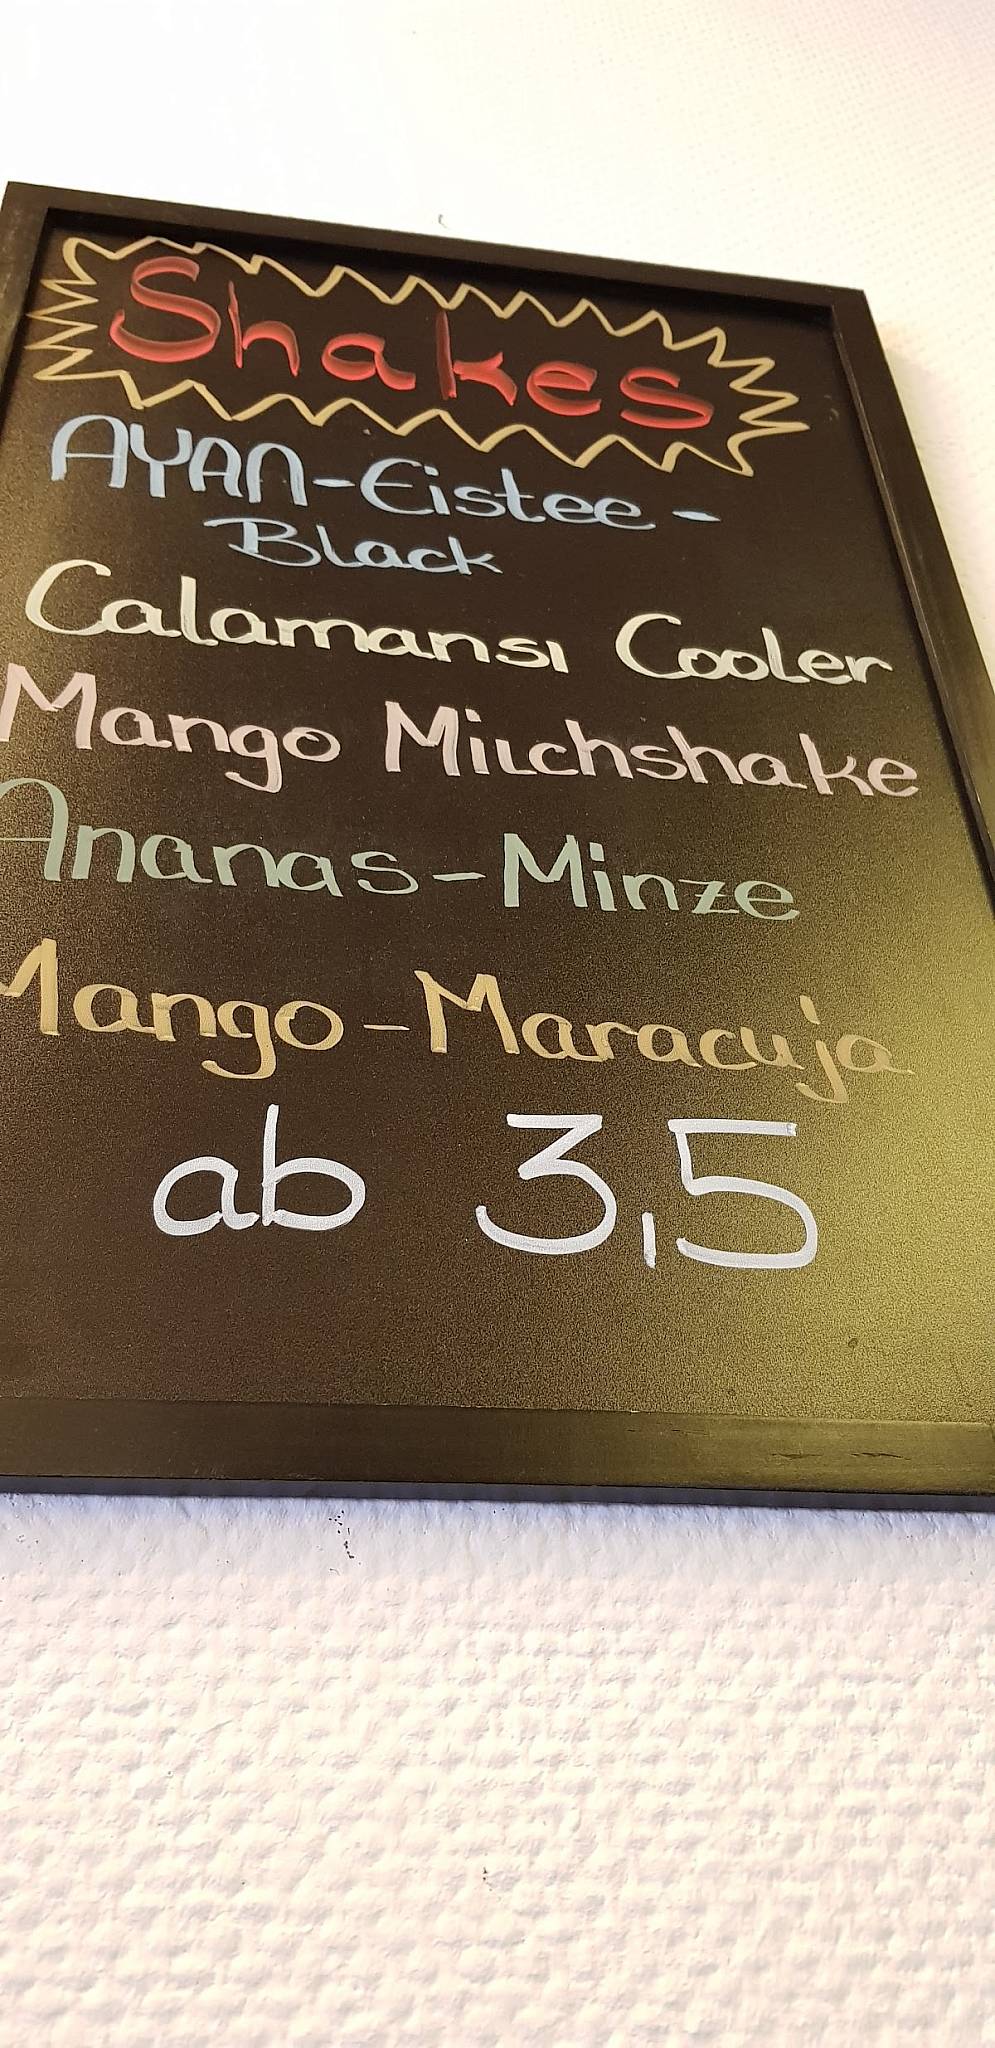 Shakes
AYAN-Eistee-
Black
Calamansi Cooler
Mango Milchshake
Ananas-Minze
Mango-Maracuja
ab 3,5